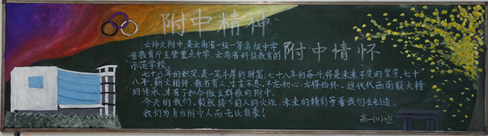 附中精神
附中情怀
云师大附中,是云南省一级一等高级中学
省教育厅主管重点中学、云南省科技教育的
示范学校
七十八年的积淀,是一笔丰厚的财富,七十八年的奋斗,将是未来不变的坚守,七十
八年,薪火相传,教书育人,生生不息,不忘初心,方得始终,这代代西南联大精
的传承,才有了如今傲立群雄的附中。
今天的我们,载着前人的火炬,未来的精彩等着我们去创造。
我们为身为附中人而无比自豪!
高一(11)班